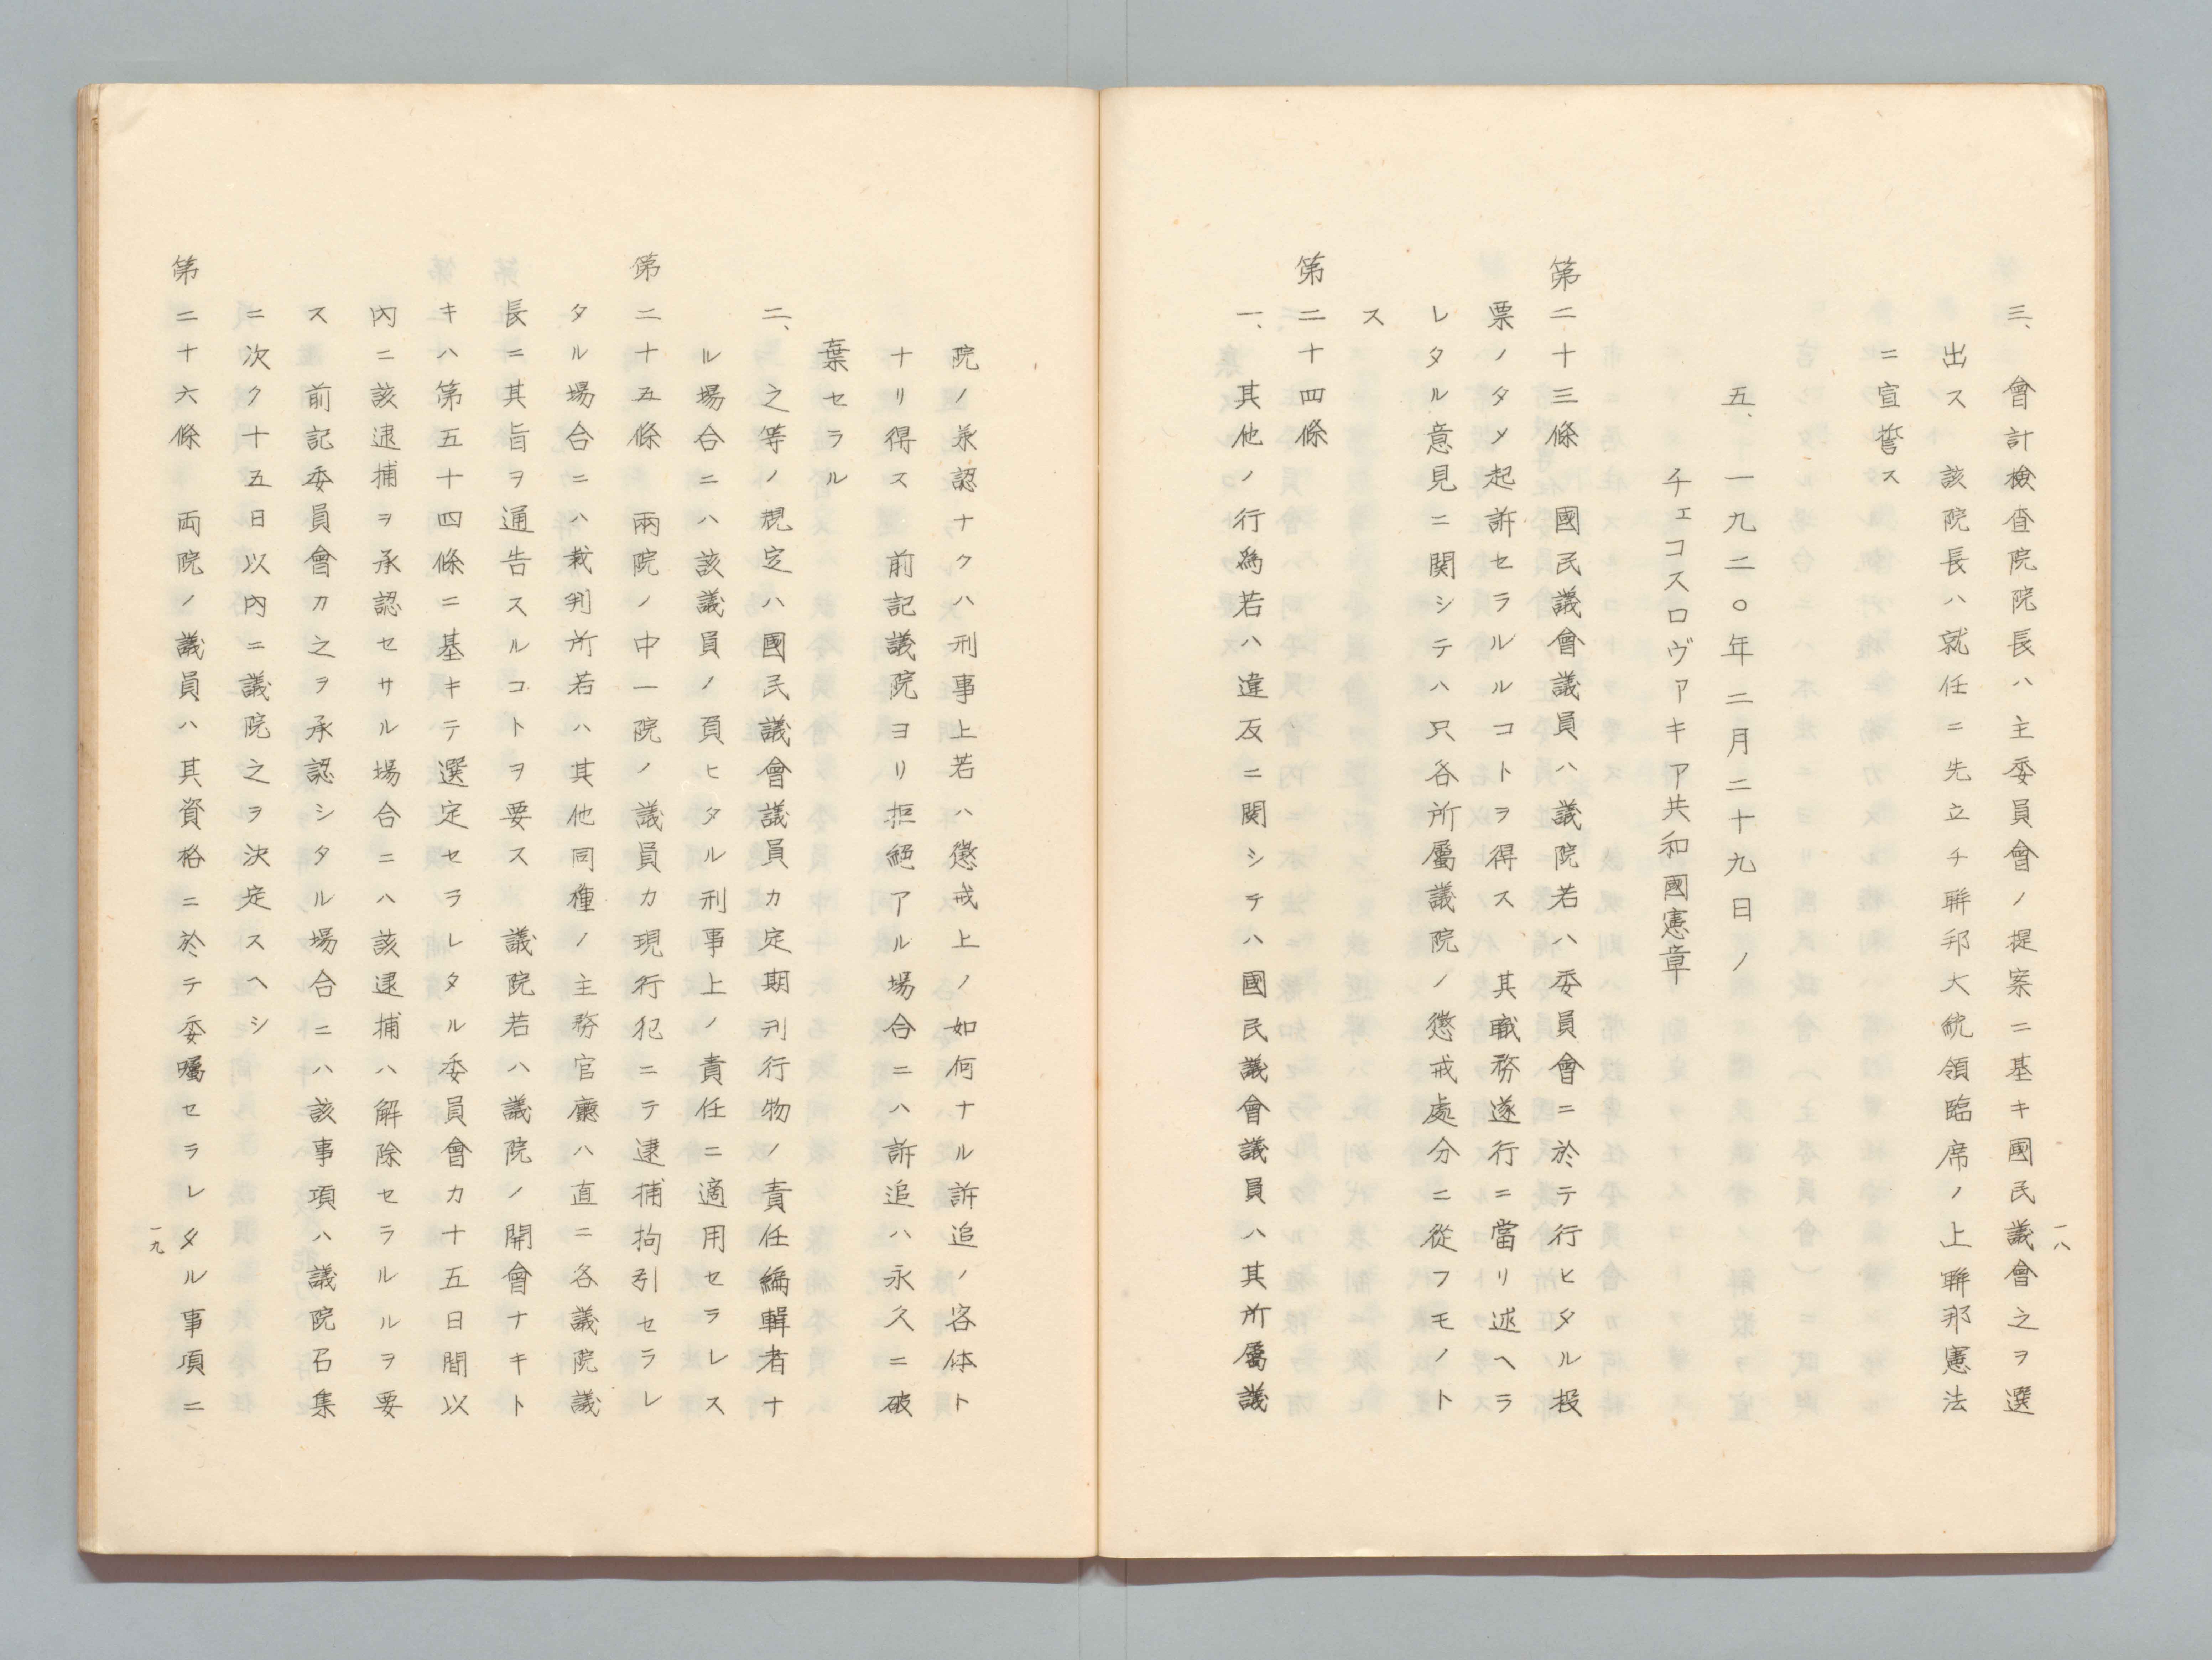 一八
三、會計檢査院院長ハ主委員會ノ提案ニ基キ國民議會之ヲ選
出ス 該院長ハ就任ニ先立チ聯邦大統領臨席ノ上聯那憲法
ニ宣誓ス
五、一九二〇年二月二十九日ノ
チェコスロヴアキア共和國憲章
第二十三條 國民議會議員ハ議院若ハ委員會ニ於テ行ヒタル投
票ノタメ起訴セラルルコトヲ得ス 其職務遂行ニ當リ述ヘラ
レタル意見ニ関シテハ只各所屬議院ノ懲戒處分ニ從フモノト
ス
第二十四條
一、其他ノ行爲若ハ違反ニ関シテハ國民議會議員ハ其所屬議
院ノ承認ナクハ刑事上若ハ懲戒上ノ如何ナル訴追ノ客体ト
ナリ得ス 前記議院ヨリ拒絕アル場合ニハ訴追ハ永久ニ破
棄セラル
二、之等ノ規定ハ國民議會議員カ定期刊行物ノ責任編輯者ナ
ル場合ニハ該議員ノ負ヒタル刑事上ノ責任ニ適用セラレス
第二十五條 兩院ノ中一院ノ議員カ現行犯ニテ逮捕拘引セラレ
タル場合ニハ裁判所若ハ其他同種ノ主務官廳ハ直ニ各議院議
長ニ其旨ヲ通告スルコトヲ要ス 議院若ハ議院ノ開會ナキト
キハ第五十四條ニ基キテ選定セラレタル委員會カ十五日間以
內ニ該逮捕ヲ承認セサル場合ニハ該逮捕ハ解除セラルルヲ要
ス 前記委員會カ之ヲ承認シタル場合ニハ該事項ハ議院召集
ニ次ク十五日以內ニ議院之ヲ決定スヘシ
第二十六條 両院ノ議員ハ其資格ニ於テ委囑セラレタル事項ニ
一九